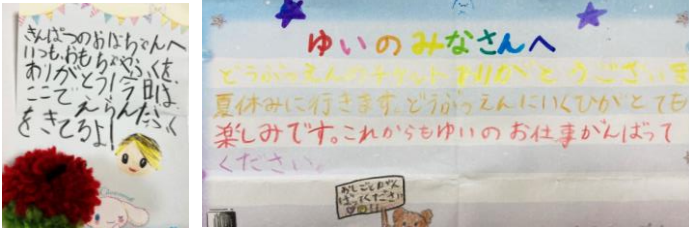 きんぱつのおばちゃんへ
いつも、おもちゃやふくを、
ありがとう!今日は、
ここでえらんだふく
をきてるよ!
ゆいのみなさんへ
どうぶつえんのチケットありがとうございま
夏休みに行きます。どうぶつえんにいくひがとても
楽しみです。これからもゆいのお仕事がんばって
ください。
おしごとがん
ばってください